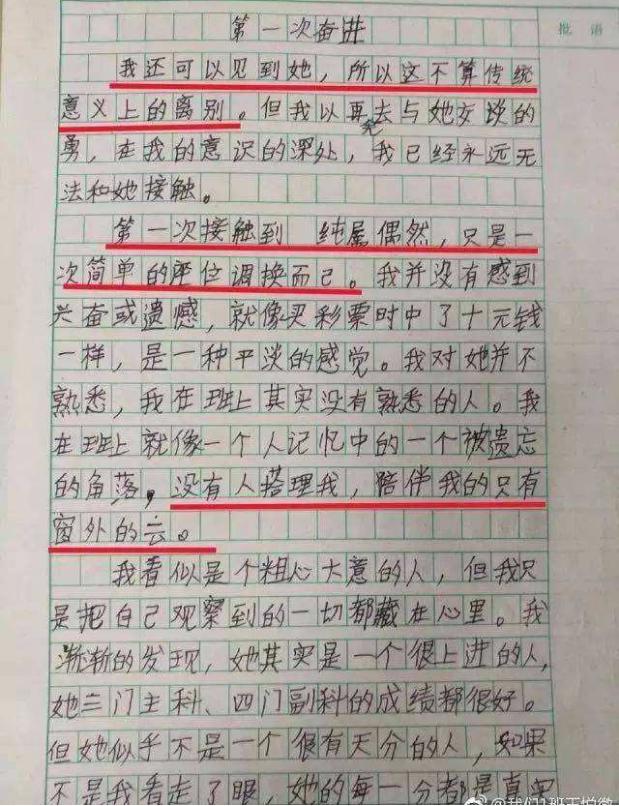 第一次奋进
批 语
我还可以见到她，所以这不算传统
意义上的离别。但我以再去与她交谈的
勇，在我的意识的深处，我已经永远无
法和她接触。
第一次接触到 纯属偶然，只是一
次简单的座位调换而已。我并没有感到
兴奋或遗憾，就像买彩票时中了十元钱
一样，是一种平淡的感觉。我对她并不
熟悉，我在班上其实没有熟悉的人。我
在班上就像一个人记忆中的一个被遗忘
的角落，没有人搭理我，陪伴我的只有
窗外的云。
我看似是个粗心大意的人，但我只
是把自己观察到的一切都藏在心里。我
渐渐的发现，她其实是一个很上进的人，
她三门主科、四门副科的成绩都很好。
但她似乎不是一个很有天分的人，如果
不是我看走了眼，她的每一分都是真实
@我们1班王悦微